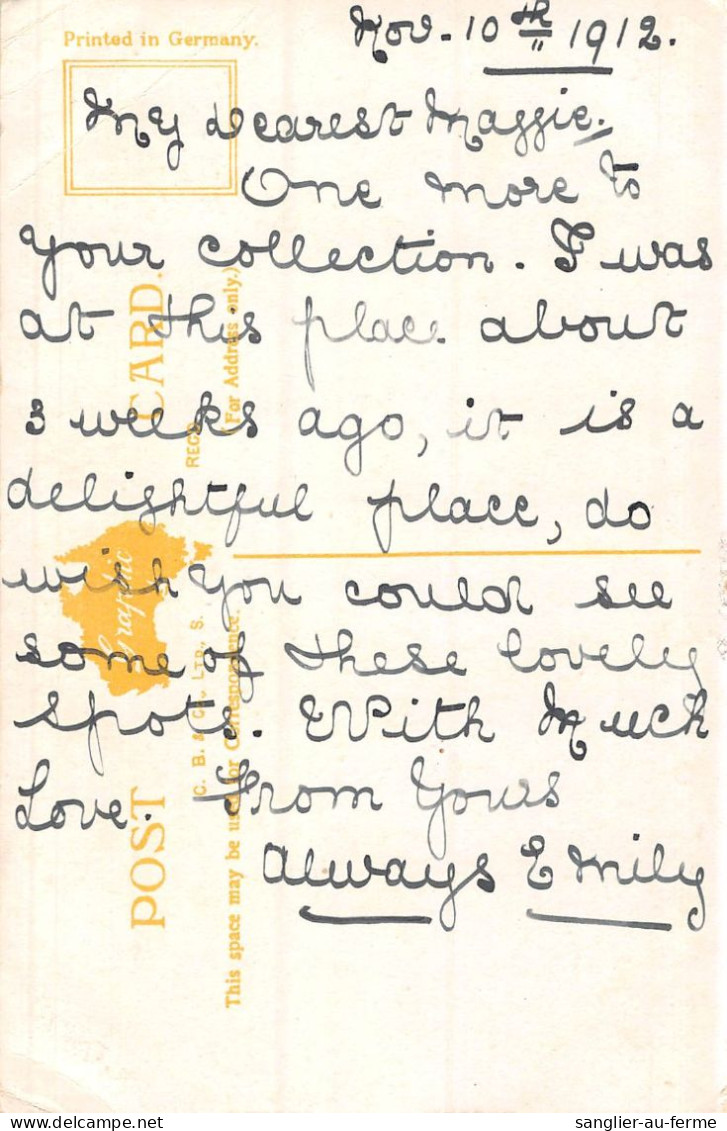 Printed in Germany.
Nov. 10th 1912.
My dearest Maggie.
One more to
your collection. I was
at this place about
3 weeks ago, it is a
delightful place, do
wish you could see
some of these lovely
spots. With Much
Love. From Yours
Always Emily
POST CARD.
REGD.
(For Address only.)
Graphic
C. B. & Co., LTD., S.
This space may be used for Correspondence.
sanglier-au-ferme